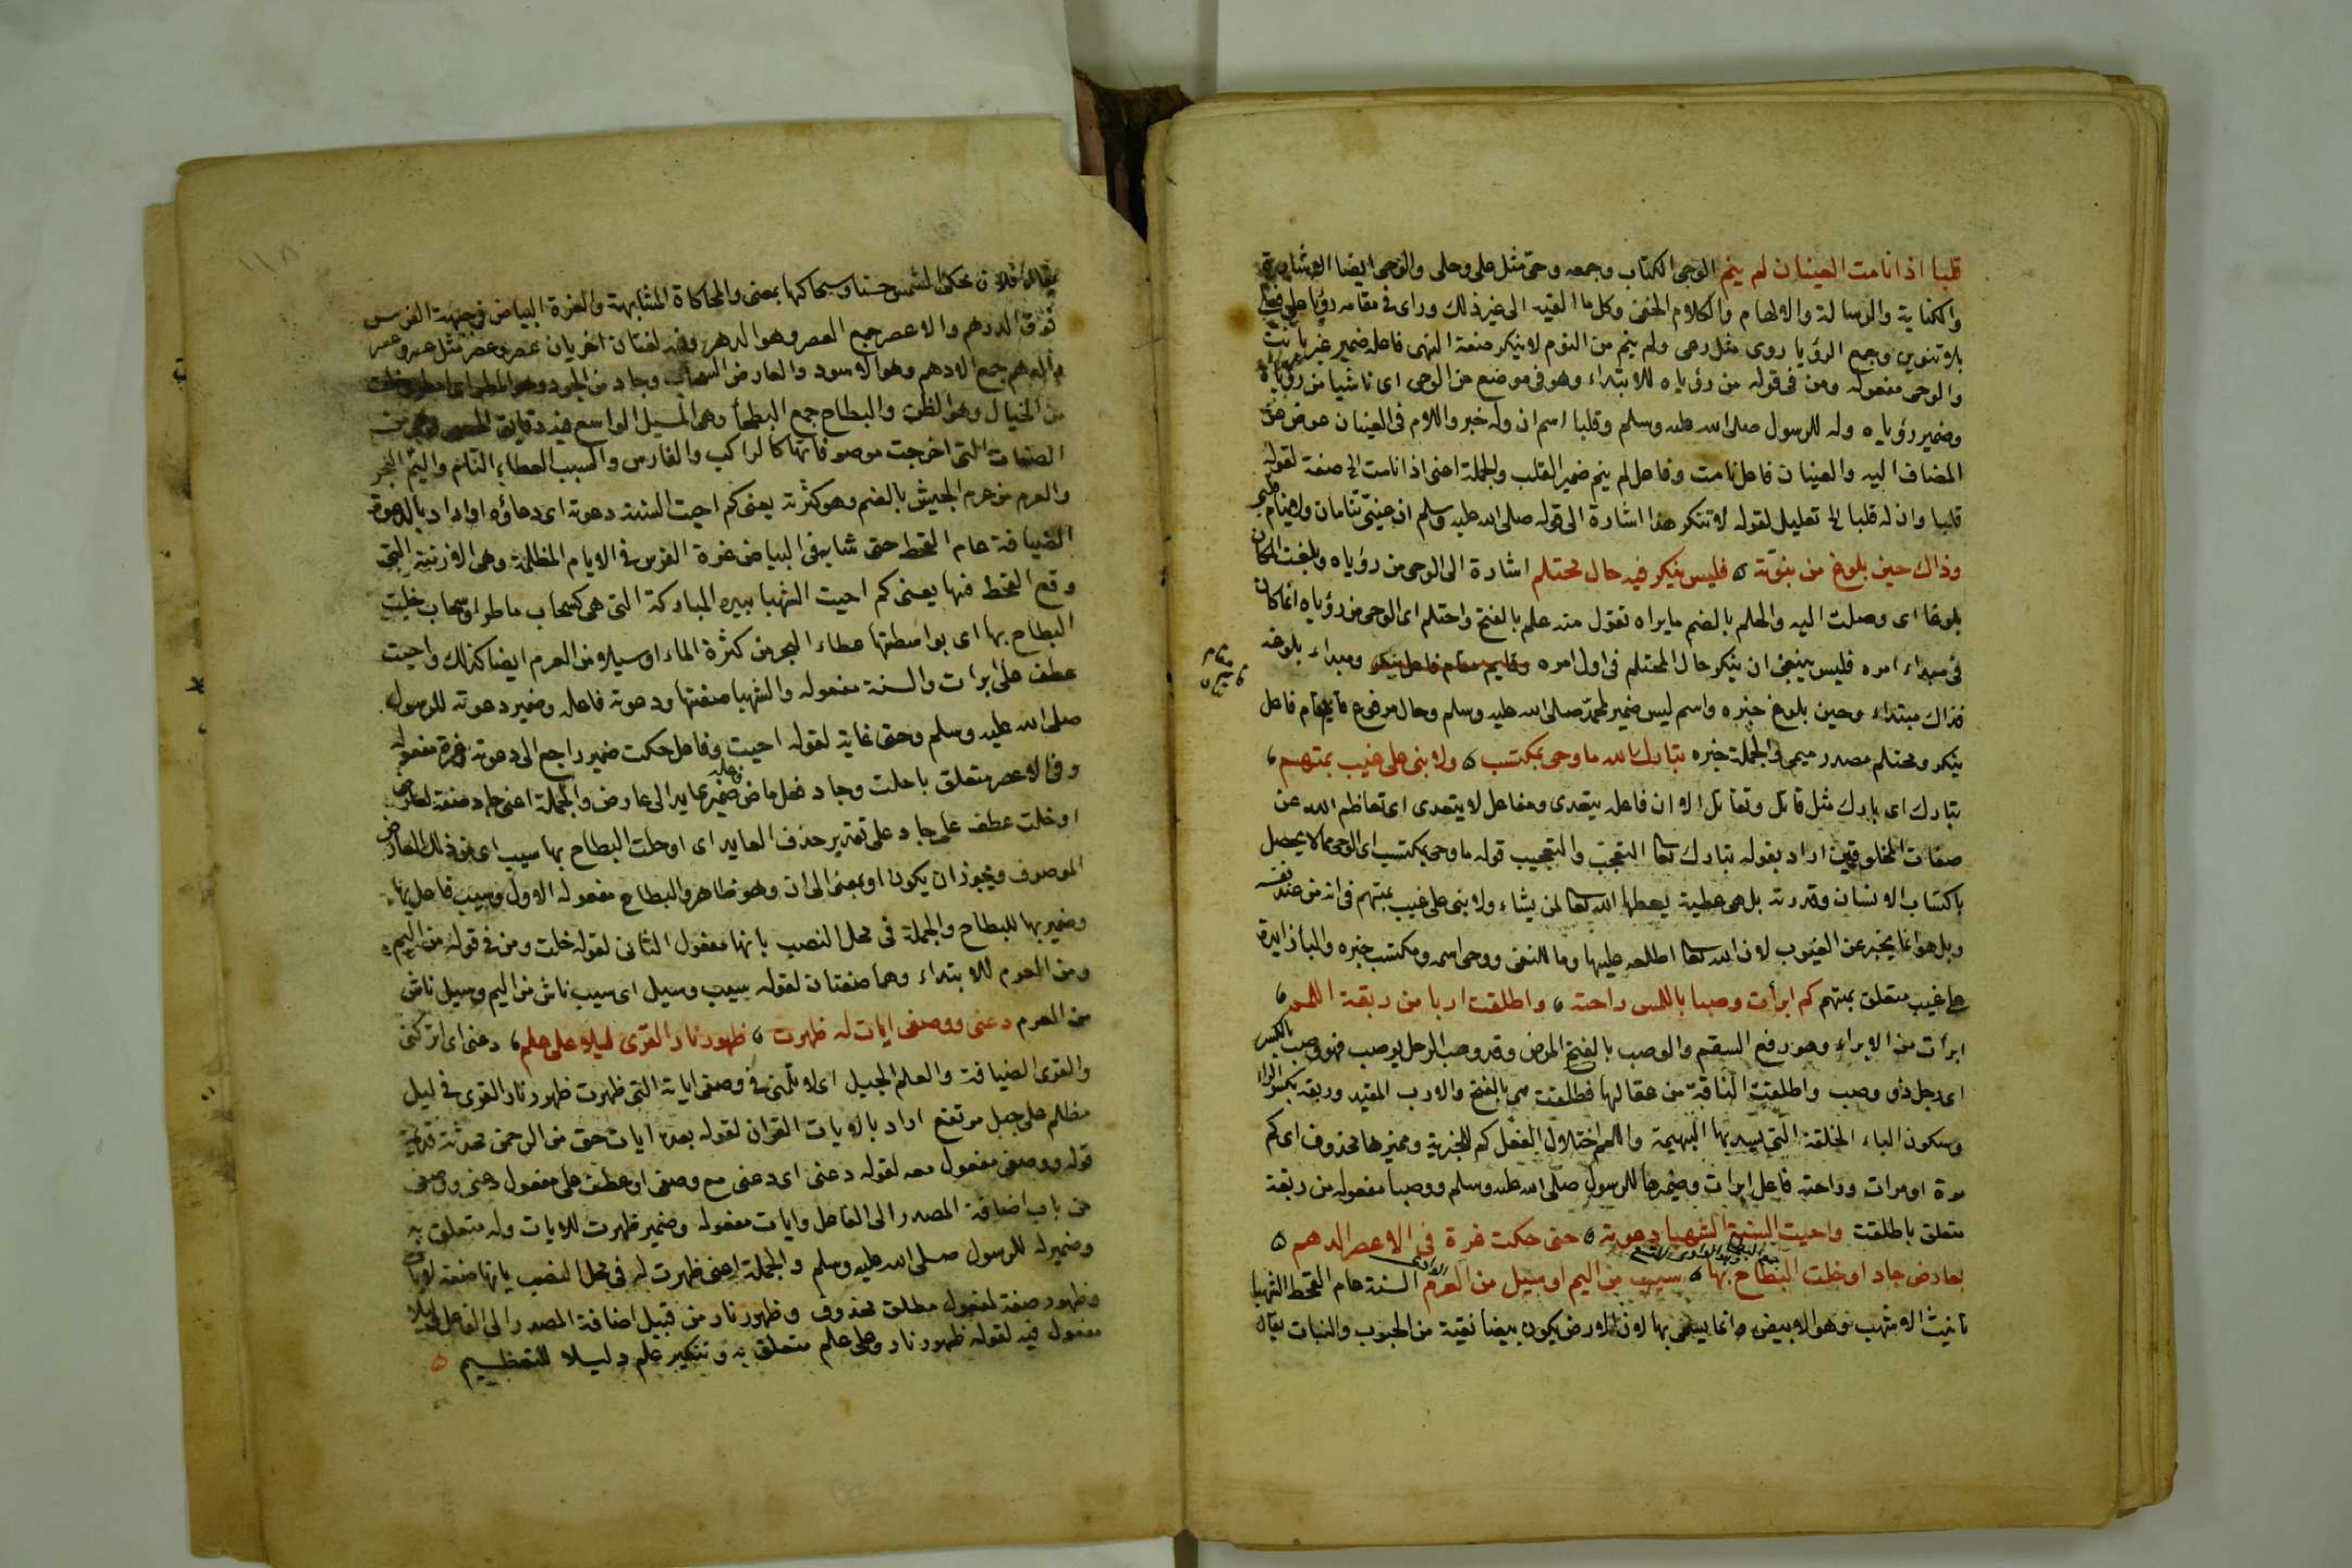 قلبا اذا نامت العينان لم ينم الوحى الكتاب وجمعه وحىّ مثل حلى وحلى والوحى ايضا الاشارة
والكناية والرسالة والالهام والكلام الخفى وكل ما القيه الى غيرذلك وراى فى مقامه رؤيا على فعلى
بلا تنوين وجمع الرؤيا روى مثل رعى ولم ينم من النوم لا ينكر صنعة النهى فاعله ضمير غير بانت
والوحى مفعوله ومن فى قوله من رؤياه للابتداء وهو فى موضع من الوحى اى ناشيا من رؤياه
وضمير رؤياه وله للرسول صلى الله عليه وسلم وقلبا اسم ان وله خبر واللام فى العينان عوض عن
المضاف اليه والعينان فاعل نامت وفاعل لم ينم ضمير القلب والجملة اعنى اذا نامت الخ صفة لقوله
قلبا وان له قلبا الخ تعليل لقوله لا تنكر هذا اشارة الى قوله صلى الله عليه وسلم ان عينىّ تنامان ولا ينام قلبى
وذاك حين بلوغ من نبوّته فليس ينكر فيه حال محتلم اشارة الى الوحى من رؤياه وبلغت المكان
بلوغا اى وصلت اليه والحلم بالضم ما يراه تقول منه حلم بالفتح واحتلم اى الوحى من رؤياه انما كان
فى مبداء امره فليس ينبغى ان ينكر حال المحتلم فى اول امره ومبداء بلوغه
فذاك مبتداء وحين بلوغ خبره واسم ليس ضمير لمحمد صلى الله عليه وسلم وحال مرفوع قايم مقام فاعل
ينكر ومحتلم مصدر ميمى والجملة خبره تبارك الله ما وحى بمكتسب ولا نبى على غيب بمتهم
تبارك اى بارك مثل قاتل وتقاتل الا ان فاعل يتعدى وتفاعل لا يتعدى اى تعاظم الله عن
صفات المخلوقين اراد بقوله تبارك الله التعجب والتعجيب قوله ما وحى بمكتسب اى الوحى مما لا يحصل
باكتساب الانسان وقدرته بل هى عطية يعطها الله تعالى لمن يشاء ولا نبى على غيب بمتهم فى انه من عند نفسه
وبل هو انما يخبر عن الغيوب لان الله تعالى اطلعه عليها وما للنفى ووحى اسمه وبمكتسب خبره والباء زايدة
على غيب متعلق بمتهم كم ابرأت وصبا باللمس راحته واطلقت اربا من ربقة اللمم
ابرأت من الابراء وهو رفع السقم والوصب بالفتح المرض وقد وصب الرجل يوصب فهو وصب بالكسر
اى رجل ذو وصب واطلقت الناقة من عقالها فطلقت هى بالفتح والارب المقيد وربقه بكسر الراء
وسكون الباء الحلقة التى يشد بها البهيمة واللمم اختلال العقل كم للخبرية ومميزها محذوف اى كم
مرة او مرات وراحته فاعل ابرات وضميرها للرسول صلى الله عليه وسلم ووصبا مفعوله من ربقة
متعلق باطلقت واحيت السنة الشهباء دعوته حتى حكت غرة فى الاعصر الدهم
بعارض جاد او خلت البطاح بها سيب من اليم او سيل من العرم السنة عام القحط الشهبا
تانيث الاشهب وهو الابيض وانما يسمى بها لان الارض يكون بيضا نقية من الحبوب والنبات يقال
فلان يحكى الشمس حسنا ويحاكيها بمعنى والمحاكاة المشابهة والغرة البياض فى جبهة الفرس
فوق الدرهم والاعصر جمع العصر وهو الدهر وفيه لغتان اخريان عصر وعصر مثل عسر وعسر
والدهم جمع الادهم وهو الاسود والعارض السحاب وجاد من الجود وهو المطر
من الخيال وهو الظن والبطاح جمع البطحأ وهى المسيل الواسع فيه دقاق
الصفات التى اخرجت موصوفاتها كالراكب والفارس والسيب العطاء النائم واليم البحر
والعرم من عرم الجيش بالضم وهو كثرته يعنى كم احيت السنة دعوته اى دعاؤه او اراد بالدعوة
الضيافة عام القحط حتى شابه فى البياض غرة الفرس فى الايام المظلمة وهى الازمنة التى
وقع القحط فيها يعنى كم احيت الشهبا بيده المباركة التى هى كسحاب ماطر او سحاب خلت
البطاح بها اى بواسطتها عطاء البحر من كثرة الماء او سيلا من العرم ايضا كذلك واحيت
عطف على ابرات والسنة مفعوله والشهبا صفتها ودعوته فاعله وضمير دعوته للرسول
صلى الله عليه وسلم وحتى غاية لقوله احيت وفاعل حكت ضمير راجع الى دعوته وغرة مفعوله
وفى الاعصر متعلق باحلت وجاد فعل ماض فاعله ضمير عايد الى عارض والجملة اعنى جاد صفة لعارض
او خلت عطف على جاد على تقدير حذف العايد اى او خلت البطاح بها سيب اى من ذلك العارض
الموصوف ويجوز ان يكون او بمعنى الى ان وهو ظاهر والبطاح مفعوله الاول وسيب فاعل بها
وضمير بها للبطاح والجملة فى محل النصب بانها مفعول الثانى لقوله خلت ومن فى قوله من اليم
ومن العرم للابتداء وهما صفتان لقوله سيب وسيل اى سيب ناش من اليم وسيل ناش
من العرم دعنى ووصفى ايات له ظهرت ظهور نار القرى ليلا على علم دعنى اى اتركنى
والقرى الضيافة والعلم الجبل اى لا تلمنى فى وصفى اياته التى ظهرت ظهور نار القرى فى ليل
مظلم على جبل مرتفع اراد بالايات القران لقوله بعده ايات حق من الرحمن محدثة قديمة
قوله ووصفى مفعول معه لقوله دعنى اى دعنى مع وصفى او عطف على مفعول دعنى ووصفى
من باب اضافة المصدر الى الفاعل وايات مفعوله وضمير ظهرت للايات وله متعلق به
وضمير له للرسول صلى الله عليه وسلم والجملة اعنى ظهرت له فى محل النصب بانها صفة لايات
وظهور صفة لمفعول مطلق محذوف وظهور نار من قبيل اضافة المصدر الى الفاعل ليلا
مفعول فيه لقوله ظهور نار وعلى علم متعلق به وتنكير علم وليلا للتعظيم